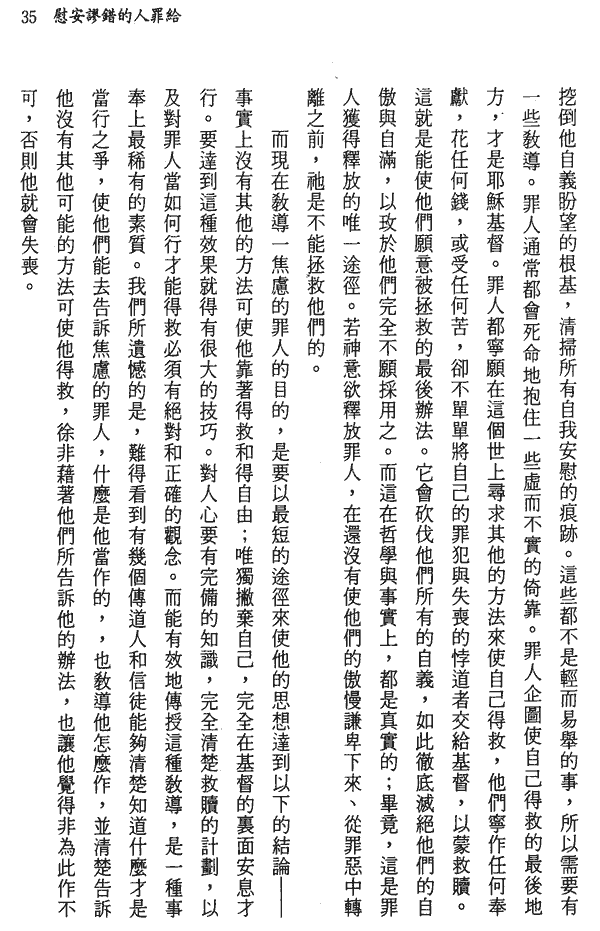 35 慰安謬錯的人罪給
挖倒他自義盼望的根基，清掃所有自我安慰的痕跡。這些都不是輕而易舉的事，所以需要有
一些教導。罪人通常都會死命地抱住一些虛而不實的倚靠。罪人企圖使自己得救的最後地
方，才是耶穌基督。罪人都寧願在這個世上尋求其他的方法來使自己得救，他們寧作任何奉
獻，花任何錢，或受任何苦，卻不單單將自己的罪犯與失喪的悖道者交給基督，以蒙救贖。
這就是能使他們願意被拯救的最後辦法。它會砍伐他們所有的自義，如此徹底滅絕他們的自
傲與自滿，以致於他們完全不願採用之。而這在哲學與事實上，都是真實的；畢竟，這是罪
人獲得釋放的唯一途徑。若神意欲釋放罪人，在還沒有使他們的傲慢謙卑下來、從罪惡中轉
離之前，祂是不能拯救他們的。
而現在教導一焦慮的罪人的目的，是要以最短的途徑來使他的思想達到以下的結論——
事實上沒有其他的方法可使他靠著得救和得自由；唯獨撇棄自己，完全在基督的裏面安息才
行。要達到這種效果就得有很大的技巧。對人心要有完備的知識，完全清楚救贖的計劃，以
及對罪人當如何行才能得救必須有絕對和正確的觀念。而能有效地傳授這種教導，是一種事
奉上最稀有的素質。我們所遺憾的是，難得看到有幾個傳道人和信徒能夠清楚知道什麼才是
當行之爭，使他們能去告訴焦慮的罪人，什麼是他當作的，，也教導他怎麼作，並清楚告訴
他沒有其他可能的方法可使他得救，徐非藉著他們所告訴他的辦法，也讓他覺得非為此作不
可，否則他就會失喪。